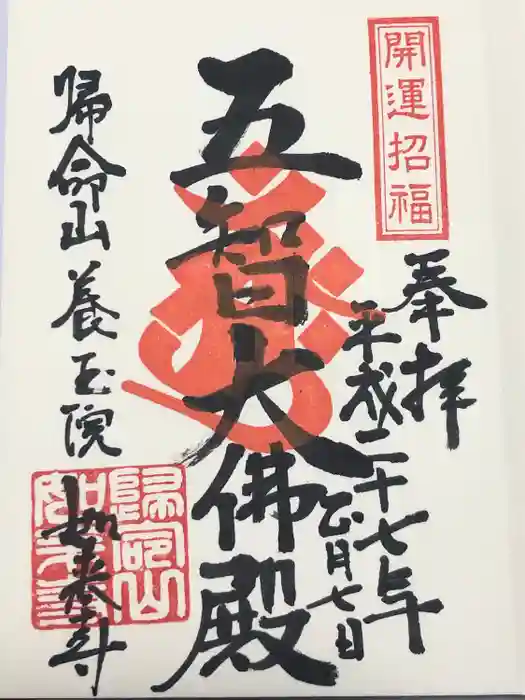 開運招福
奉拝
平成二十七年
正月七日
五智大佛殿
帰命山養玉院
如来寺
歸命山
如来寺